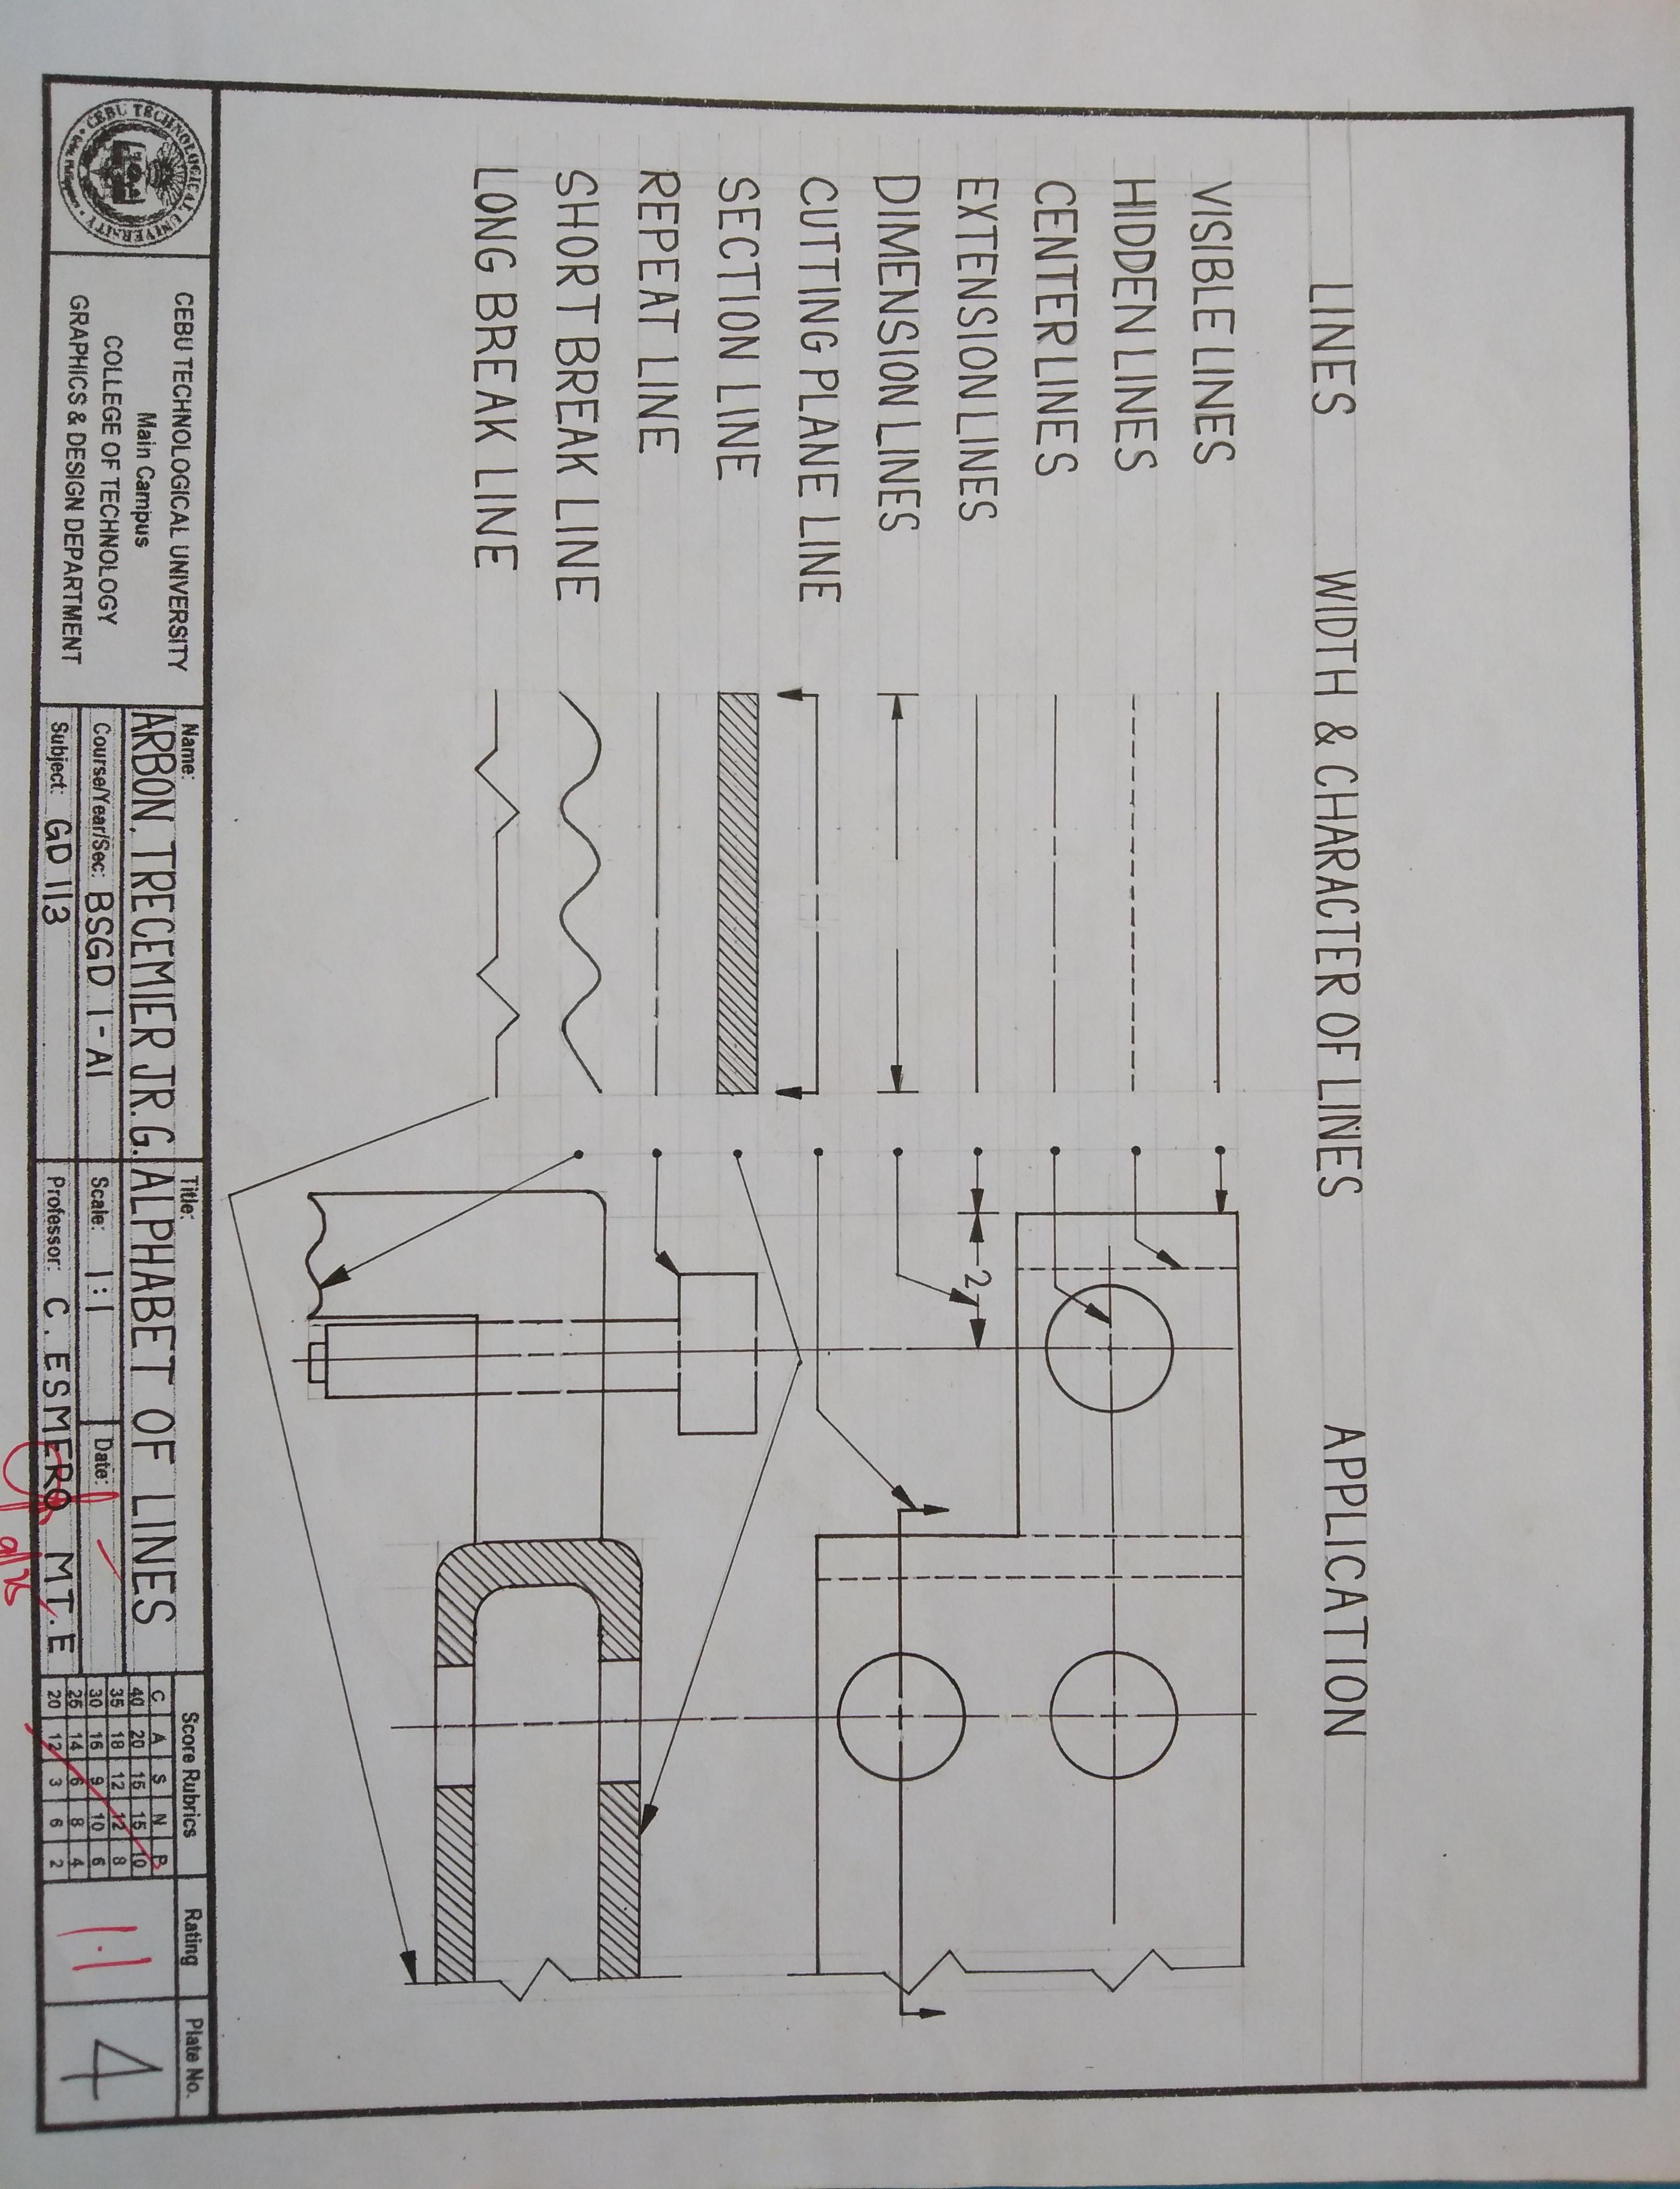 LINES WIDTH & CHARACTER OF LINES APPLICATION
VISIBLE LINES
HIDDEN LINES
CENTER LINES
EXTENSION LINES
2
DIMENSION LINES
CUTTING PLANE LINE
SECTION LINE
REPEAT LINE
SHORT BREAK LINE
LONG BREAK LINE
CEBU TECHNOLOGICAL UNIVERSITY
CEBU TECHNOLOGICAL UNIVERSITY
Main Campus
COLLEGE OF TECHNOLOGY
GRAPHICS & DESIGN DEPARTMENT
Name:
ARBON, TRECEMIER JR. G.
Course/Year/Sec: BSGD 1-A1
Subject: GD 113
Title:
ALPHABET OF LINES
Scale: 1:1
Date:
Professor: C. ESMERO MT.E
Score Rubrics
C A S N P
40 20 15 15 10
35 18 12 12 8
30 16 9 10 6
25 14 6 8 4
20 12 3 6 2
Rating
1.1
Plate No.
4